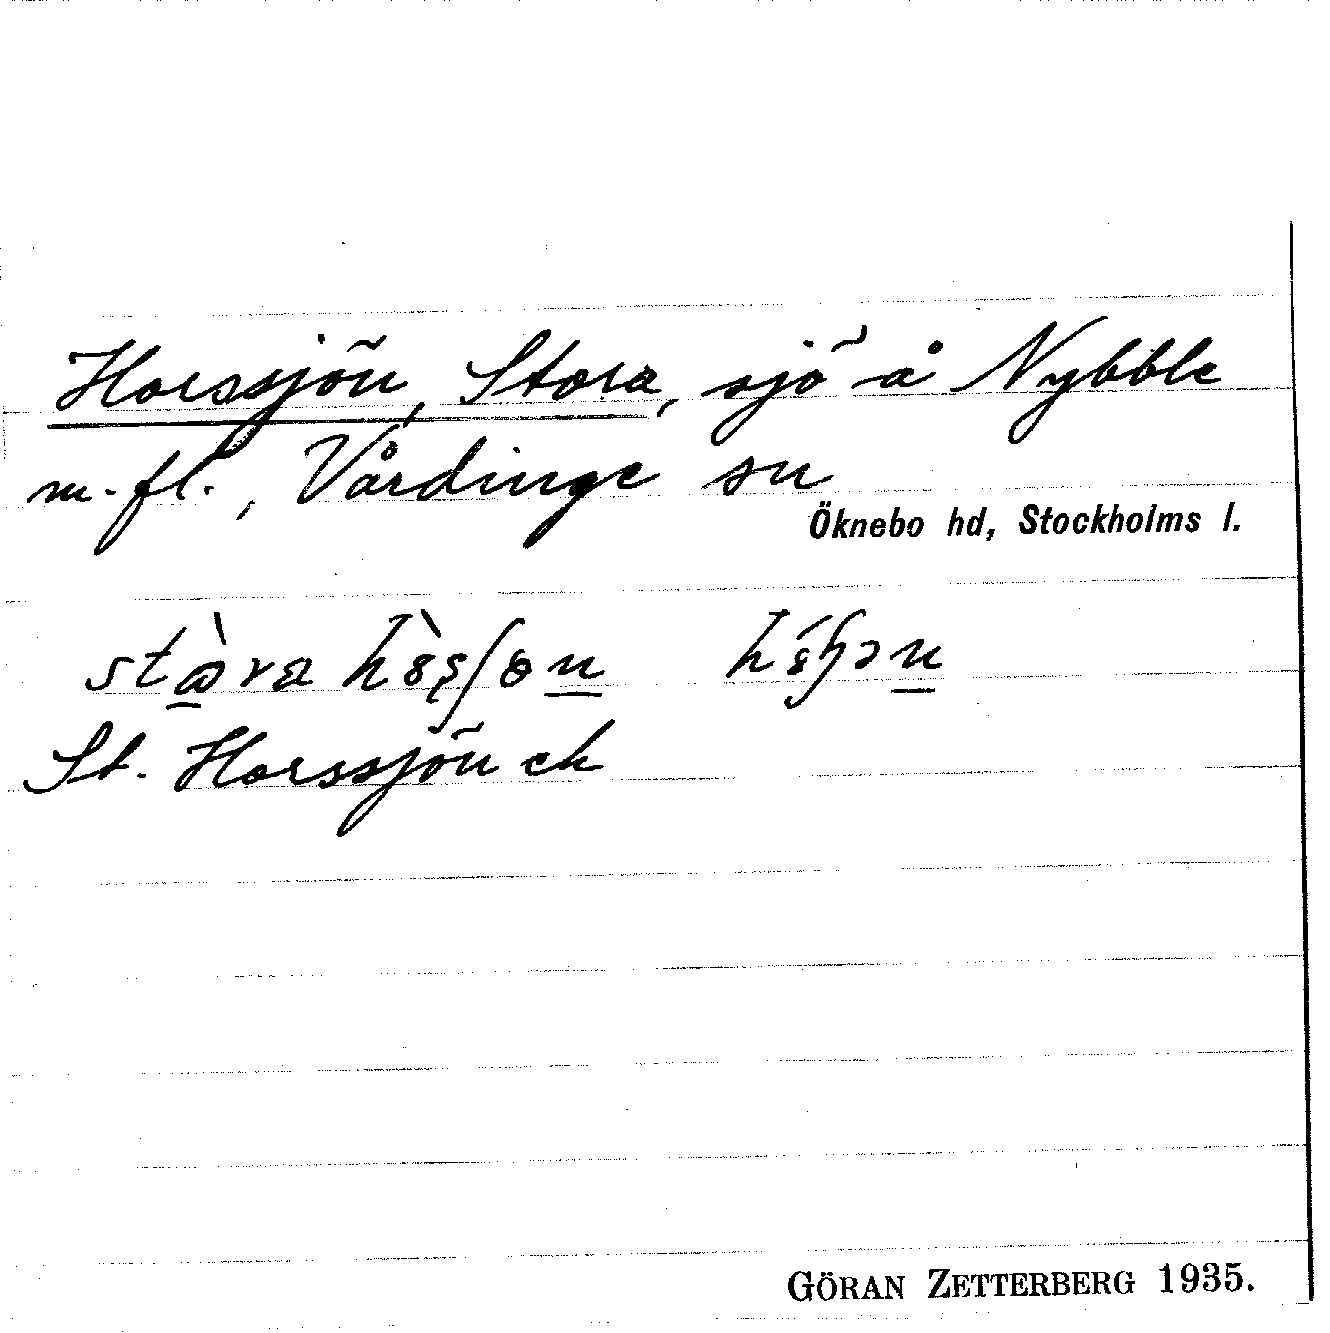 Horssjön, Stora, sjö å Nybble
m. fl., Vårdinge sn
Öknebo hd, Stockholms l.
St. Horssjön ek
GÖRAN ZETTERBERG 1935.